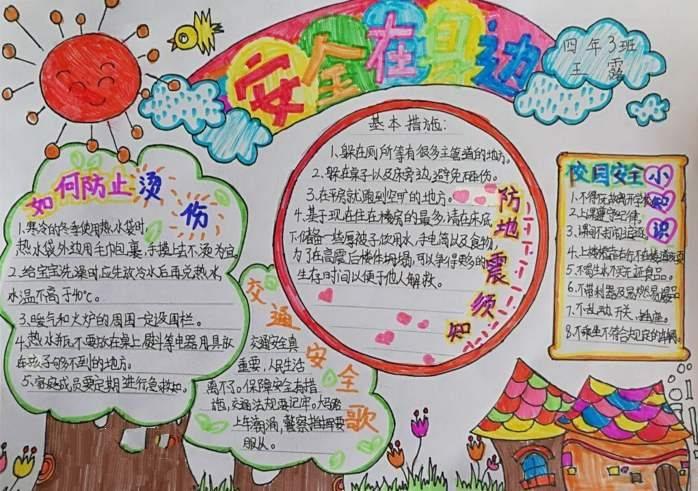 安全在身边
四年3班
王露
如何防止烫伤
1.寒冷的冬季使用热水袋时,
热水袋外边用毛巾包裹,手摸上去不烫为宜。
2.给宝宝洗澡时应先放冷水后再兑热水,
水温不高于40℃。
3.暖气和火炉的周围一定设围栏。
4.热水瓶不要放在桌上,熨斗等电器用具放
在孩子够不到的地方。
5.家庭成员要定期进行急救知。
基本措施:
1.躲在厕所等有很多主管道的地方。
2.躲在桌子以及床旁边,避免压伤。
3.在平房就跑到空旷的地方。
4.基于现在住在楼房的最多,请在床底
下储备一些厚被子饮用水,手电筒以及食物,
为了在高震后楼体坍塌,可以争得更多的
生存时间以便于他人解救。
防地震须知
校园安全小知识
2.上课遵守纪律。
3.课间不打闹追逐。
5.不喝生水不买三无食品。
6.不带利器及易燃易爆品
7.不乱动开关、插座。
8.不乘坐不符合规定的车辆。
交通安全歌
交通安全真
重要,人民生活
离不了。保障安全有措
施,交通法规要记牢。
警察指挥要
服从。